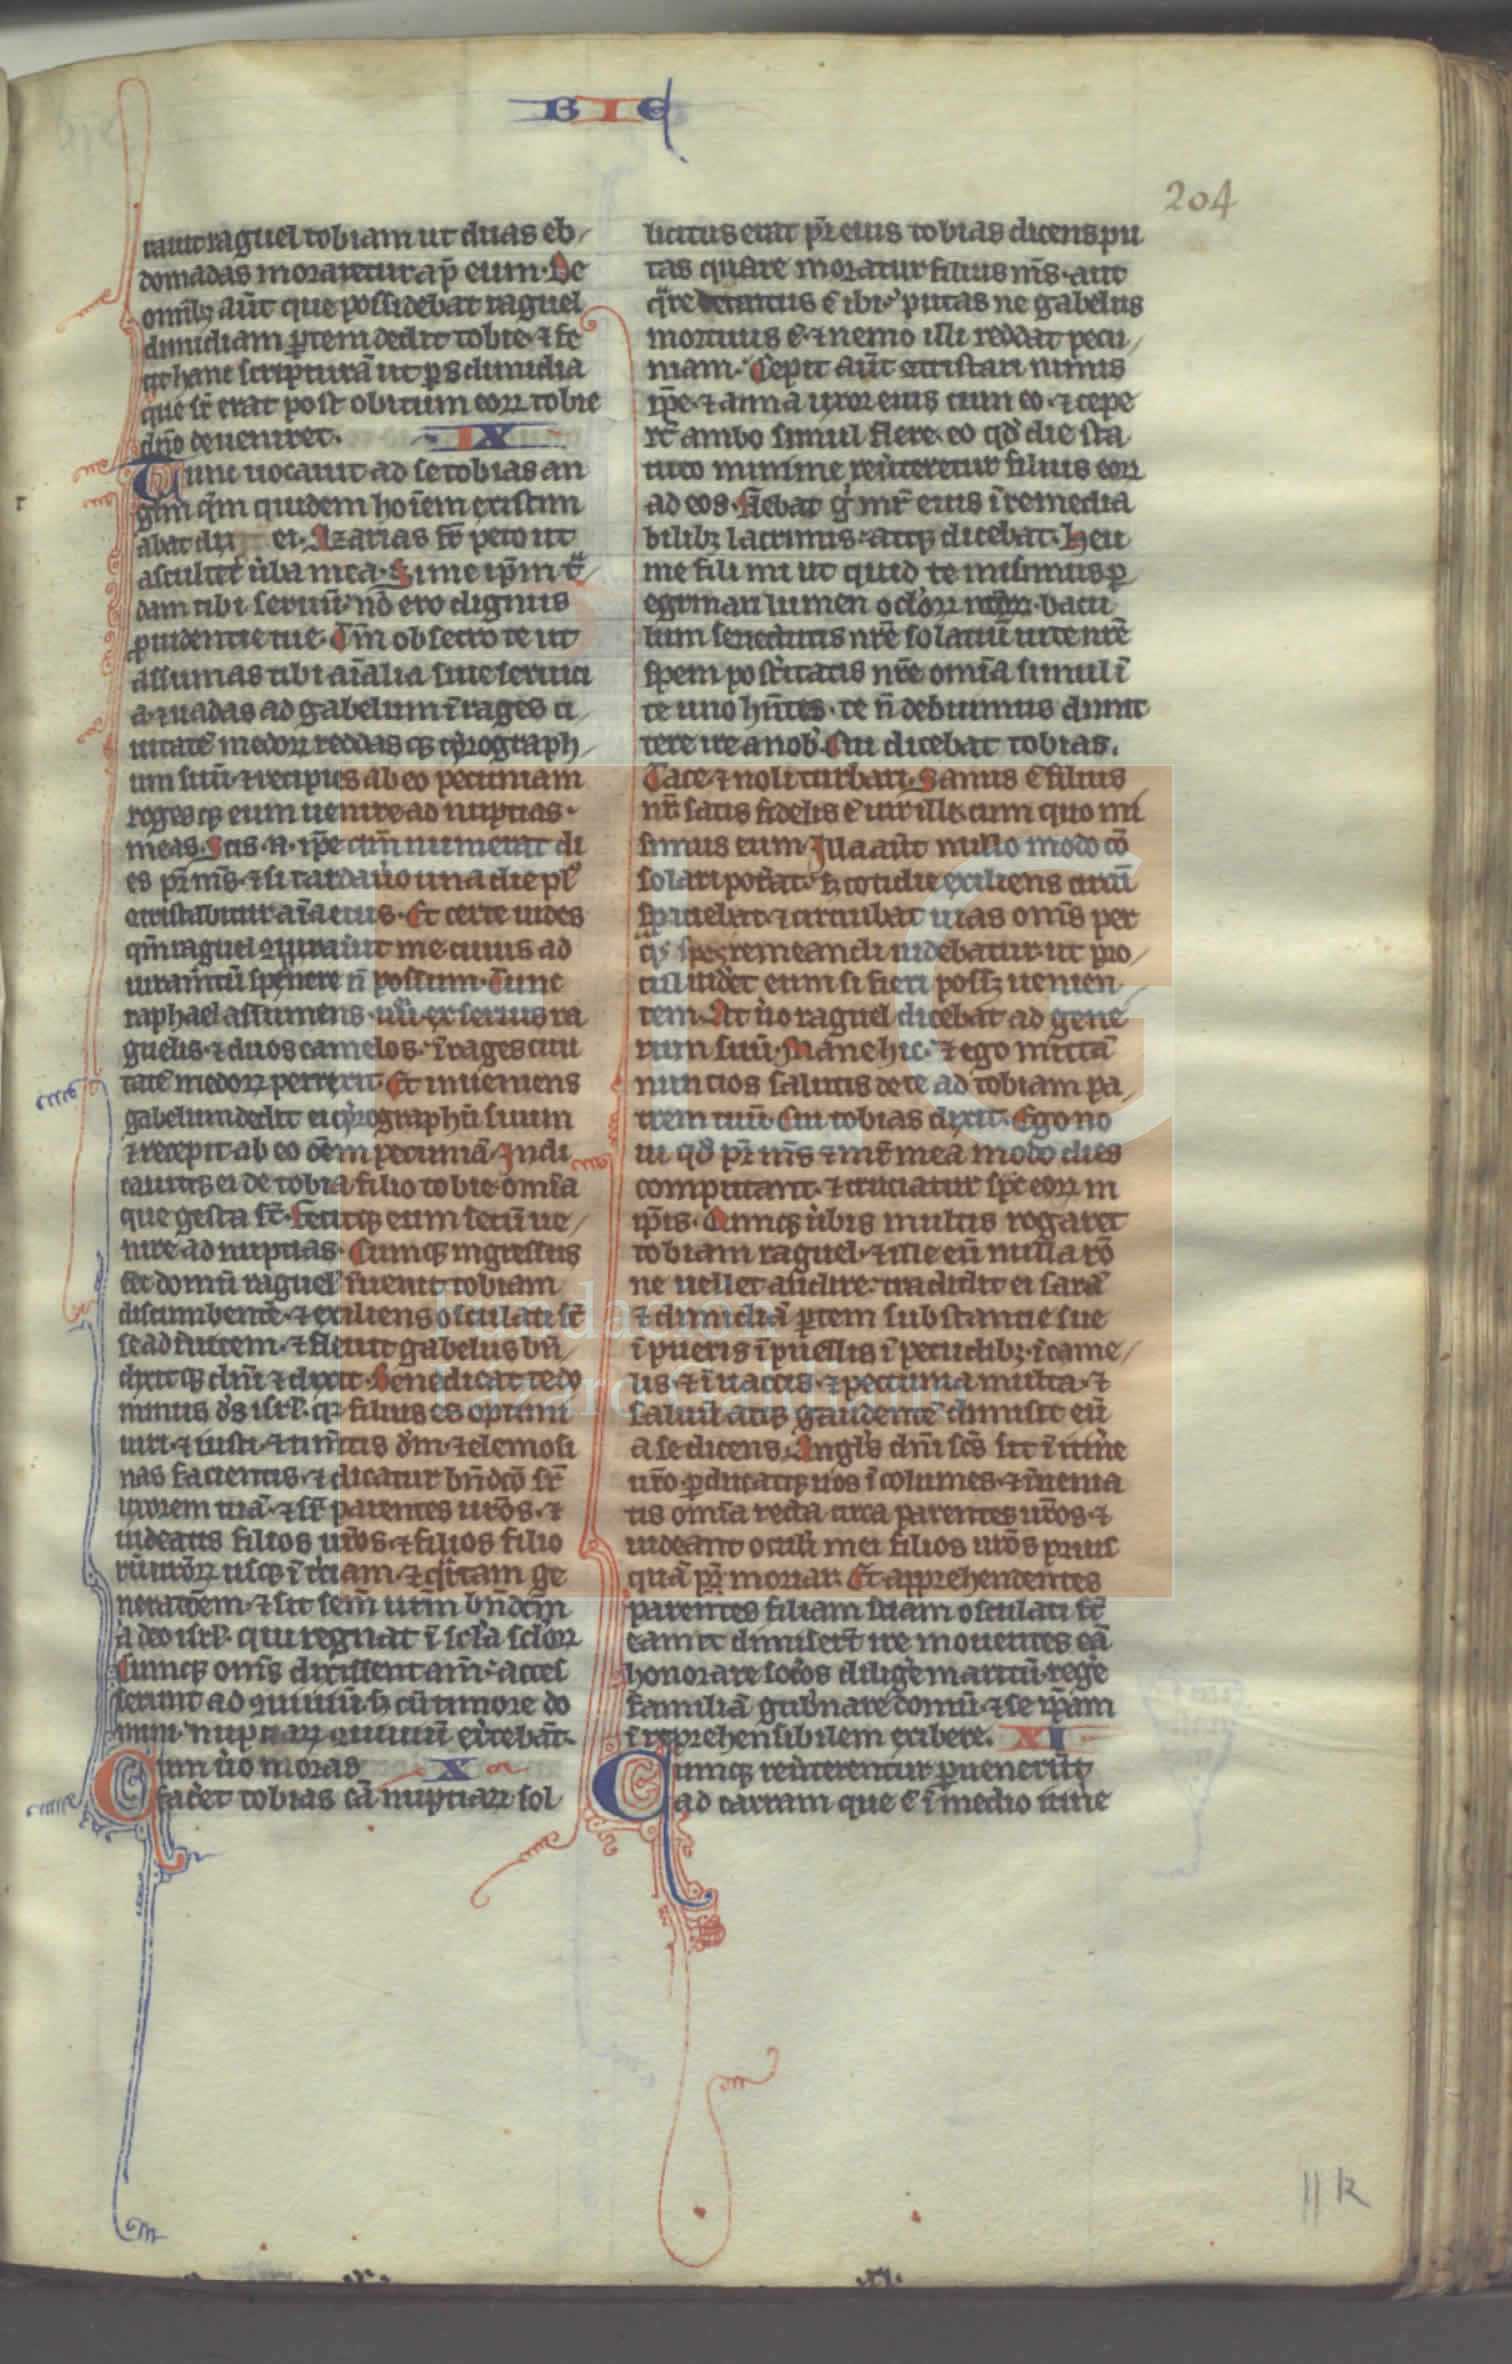 BIE
204
rauit raguel tobiam ut duas eb/
domadas moraretur ap̄ eum. De
omībꝫ aūt que possidebat raguel
dimidiam ꝑtem dedit tobie. ⁊ fe
cit hanc scripturā ut ꝑs dimidia
que sꝑ erat post obitum eoꝝ tobie
dn̄o deueniret. IX
Tunc uocauit ad se tobias an
glm̄ qm̄ quidem hoīem existim
abat ei. Azarias fr̄ peto ut
ascultet ũba mea. Si me ip̄m t̄/
dam tibi seruū. nō ero dignus
ꝓuidentie tue. Tm̄ obsecro te ut
assumas tibi aīalia siue seruici
a. ⁊ uadas ad gabelum ī rages ci/
uitatē medoꝝ reddas qꝫ cẏrograph/
um suū. ⁊ recipies ab eo pecuniam
roges qꝫ eum uenire ad nuptias.
meas. Scis. n̄. ip̄e qm̄ numerat di
es pr̄ ms̄. ⁊ si tardauo una die pl⁹
ctristabitur aīa eius. Et certe uides
qm̄ raguel ꝯiurauit me cuius ad
iuram̄tū spernere n̄ possum. Tunc
raphael assumens iiii. ex seruis ra
guelis. ⁊ duos camelos. ī rages ciui
tatē medoꝝ perrexit. Et inueniens
gabelum dedit ei cẏrographū suum
⁊ recepit ab eo oēm pecuniā. Indi
cauitqꝫ ei de tobia filio tobie omīa
que gesta st̄. Fecitqꝫ eum secū ue/
nire ad nuptias. Cumqꝫ ingressus
eēt domū raguel īuenit tobiam
discumbentē. ⁊ exiliens osculati st̄
se ad īuicem. ⁊ fleuit gabelus bn̄/
dixitqꝫ dm̄ ⁊ dixit. Benedicat te do
minus ds̄ isrl̄. qꝛ filius es optimi
uiri. ⁊ iusti. ⁊ tim̄tis dm̄. ⁊ elemosi
nas facientis. ⁊ dicatur bn̄dcō sꝑ
uxorem tuā. ⁊ sꝑ parentes ur̄os. ⁊
uideatis filios ur̄os. ⁊ filios filio
rū ur̄oꝝ usqꝫ ī tciam. ⁊ q̄rtam ge
neratōem. ⁊ sit sem̄ ur̄m bn̄dcm̄
a deo isrl̄. qui regnat ī scl̄a scl̄oꝝ
Cumqꝫ oms̄ dixissent am̄. acces
serunt ad ꝯuiuiū. sꝫ cū timore do
mini. nuptiaꝝ ꝯuiuiū exercebāt.
Cum ũo moras X
facet tobias cā nuptiaꝝ sol
licitus erat pr̄ eius tobias dicens pu
tas quare moratur filius ms̄. aut
q̄re detentus ē ibi. putas ne gabelus
mortuus ē. ⁊ nemo illi reddat pecu/
niam. Cepit aūt ctristari nimis
ip̄e. ⁊ anna uxor eius cum eo. ⁊ cepe
rt̄ ambo simul flere. eo qd̄ die sta
tuto minime reuerteretur filius eoꝝ
ad eos. Flebat g̊ mr̄ eius īremedia
bilibꝫ lacrimis. atqꝫ dicebat. Heu
me fili mi ut quid te misimus ꝑ
egrinari lumen ocl̄oꝝ nr̄oꝝ. bacu
lum senectutis nr̄e solatiū uite nr̄e
spem postitatis nr̄e omīa simul ī
te uno hn̄tes. te n̄ debuimus dimit
tere ire a nob̄. Cui dicebat tobias.
Tace. ⁊ noli turbari. Sanus ē filius
nr̄. satis fidelis ē uir ille. cum quo mi
simus eum. Illa aūt nullo modo cō
solari pot̄at. sꝫ cotidie exiliens circū
spiciebat. ⁊ circuibat uias oms̄ per
qˢ spes remeandi uidebatur. ut pro/
cul uidet eum si fieri possꝫ uenien/
tem. At ũo raguel dicebat ad gene
rum suū. Mane hic. ⁊ ego mittā
nuntios salutis de te ad tobiam pa/
trem tuū. Cui tobias dixit. Ego no
ui qd̄ pr̄ ms̄ ⁊ mr̄ mea modo dies
computant. ⁊ cruciatur spc̄ eoꝝ in
ip̄is. Cumqꝫ ũbis multis rogaret
tobiam raguel. ⁊ ille eū nulla rō
ne uellet audire. tradidit ei sarā
⁊ dimidiā ꝑtem substantie sue
ī pueris ī puellis ī pecudibꝫ. ī came/
lis. ⁊ ī uaccis. ⁊ pecunia multa. ⁊
saluū atqꝫ gaudentē dimisit eū
a se dicens. Angls̄ dm̄i scs̄ sit ī itine
ur̄o ꝑducatqꝫ uos īcolumes. ⁊ inuenia
tis omīa recta circa parentes ur̄os. ⁊
uideant oculi mei filios ur̄os prius
quā pr̄ moriar. Et apprehendentes
parentes filiam suam osculati st̄
eam ⁊ dimisert̄ ire monentes eā
honorare soc̄os diligem̄ aritū. rege
familiā gub̄nare domū. ⁊ se ip̄am
īreprehensibilem exibere. XI
Cumqꝫ reuterentur ꝑuenerūt
ad carram que ē ī medio itine
Fundación
Lázaro Galdiano